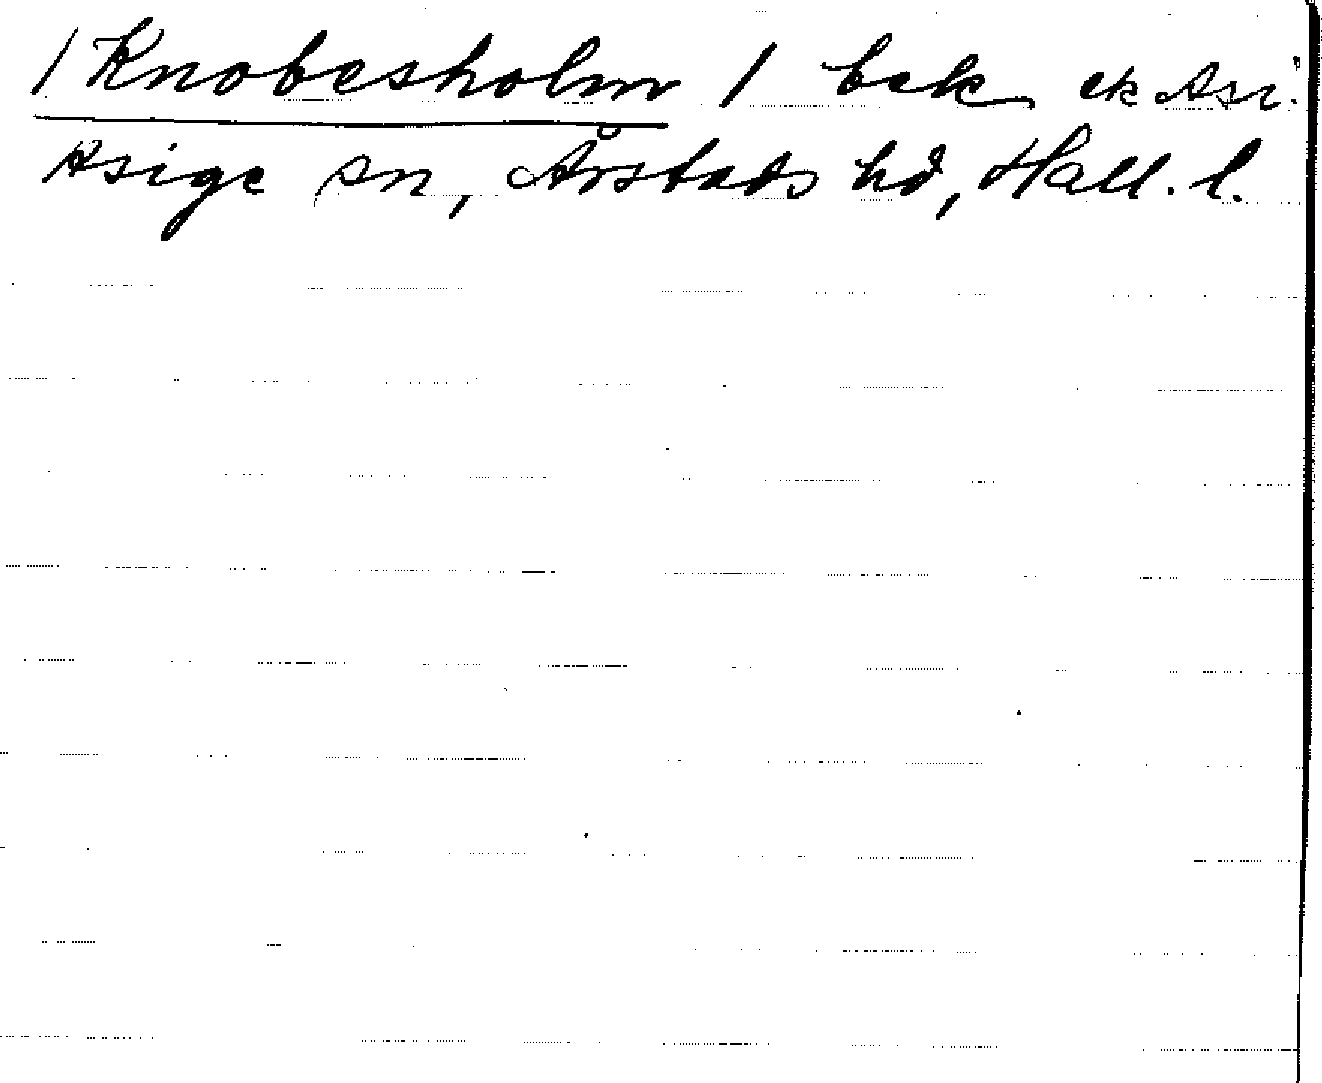 /Knobesholm/ bek. ek Asi.
Asige sn, Årstads hd, Hall. l.